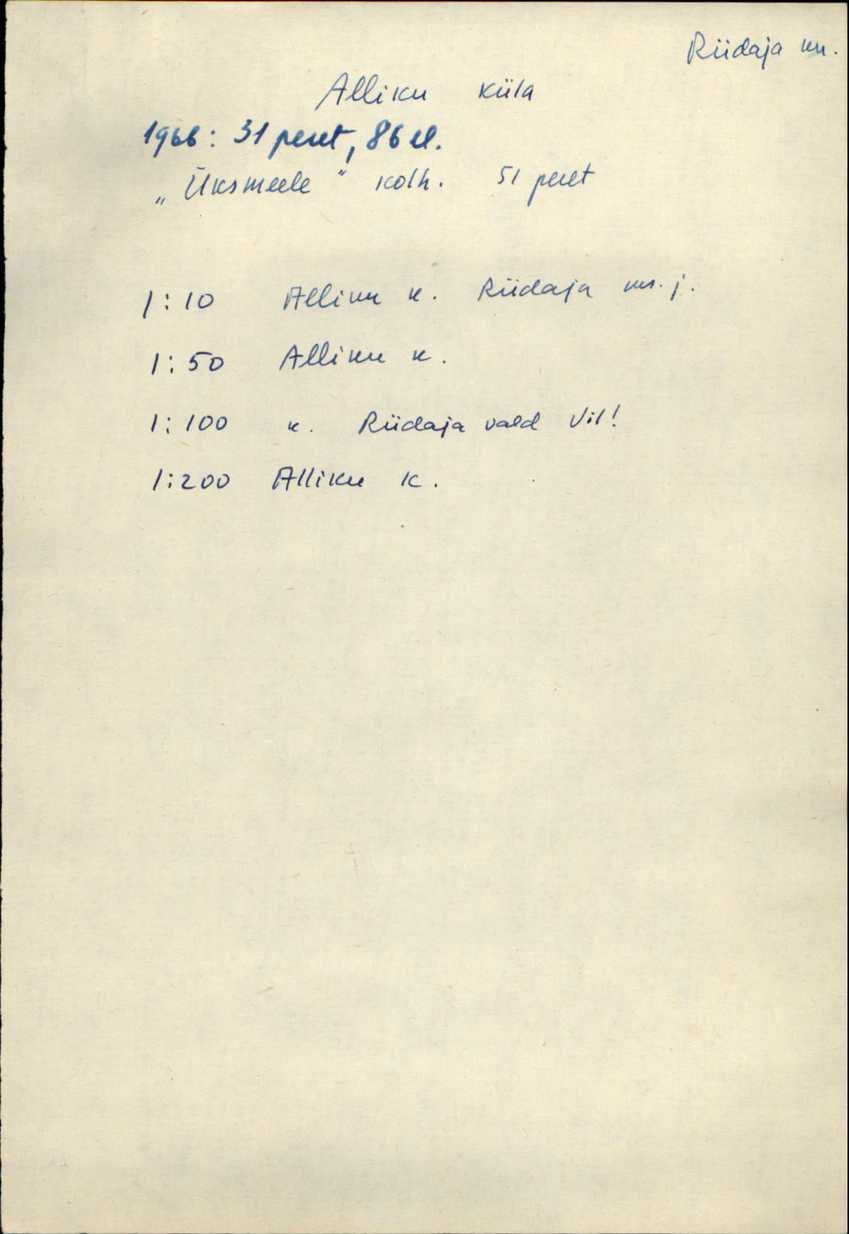 Riidaja kn.
Alliku küla
1966: 31 peret, 86 el.
„Üksmeele" kolh. 51 peret
1:10 Alliku k. Riidaja j.
1:50 Alliku k.
1:100 k. Riidaja vald Vil!
1:200 Alliku k.